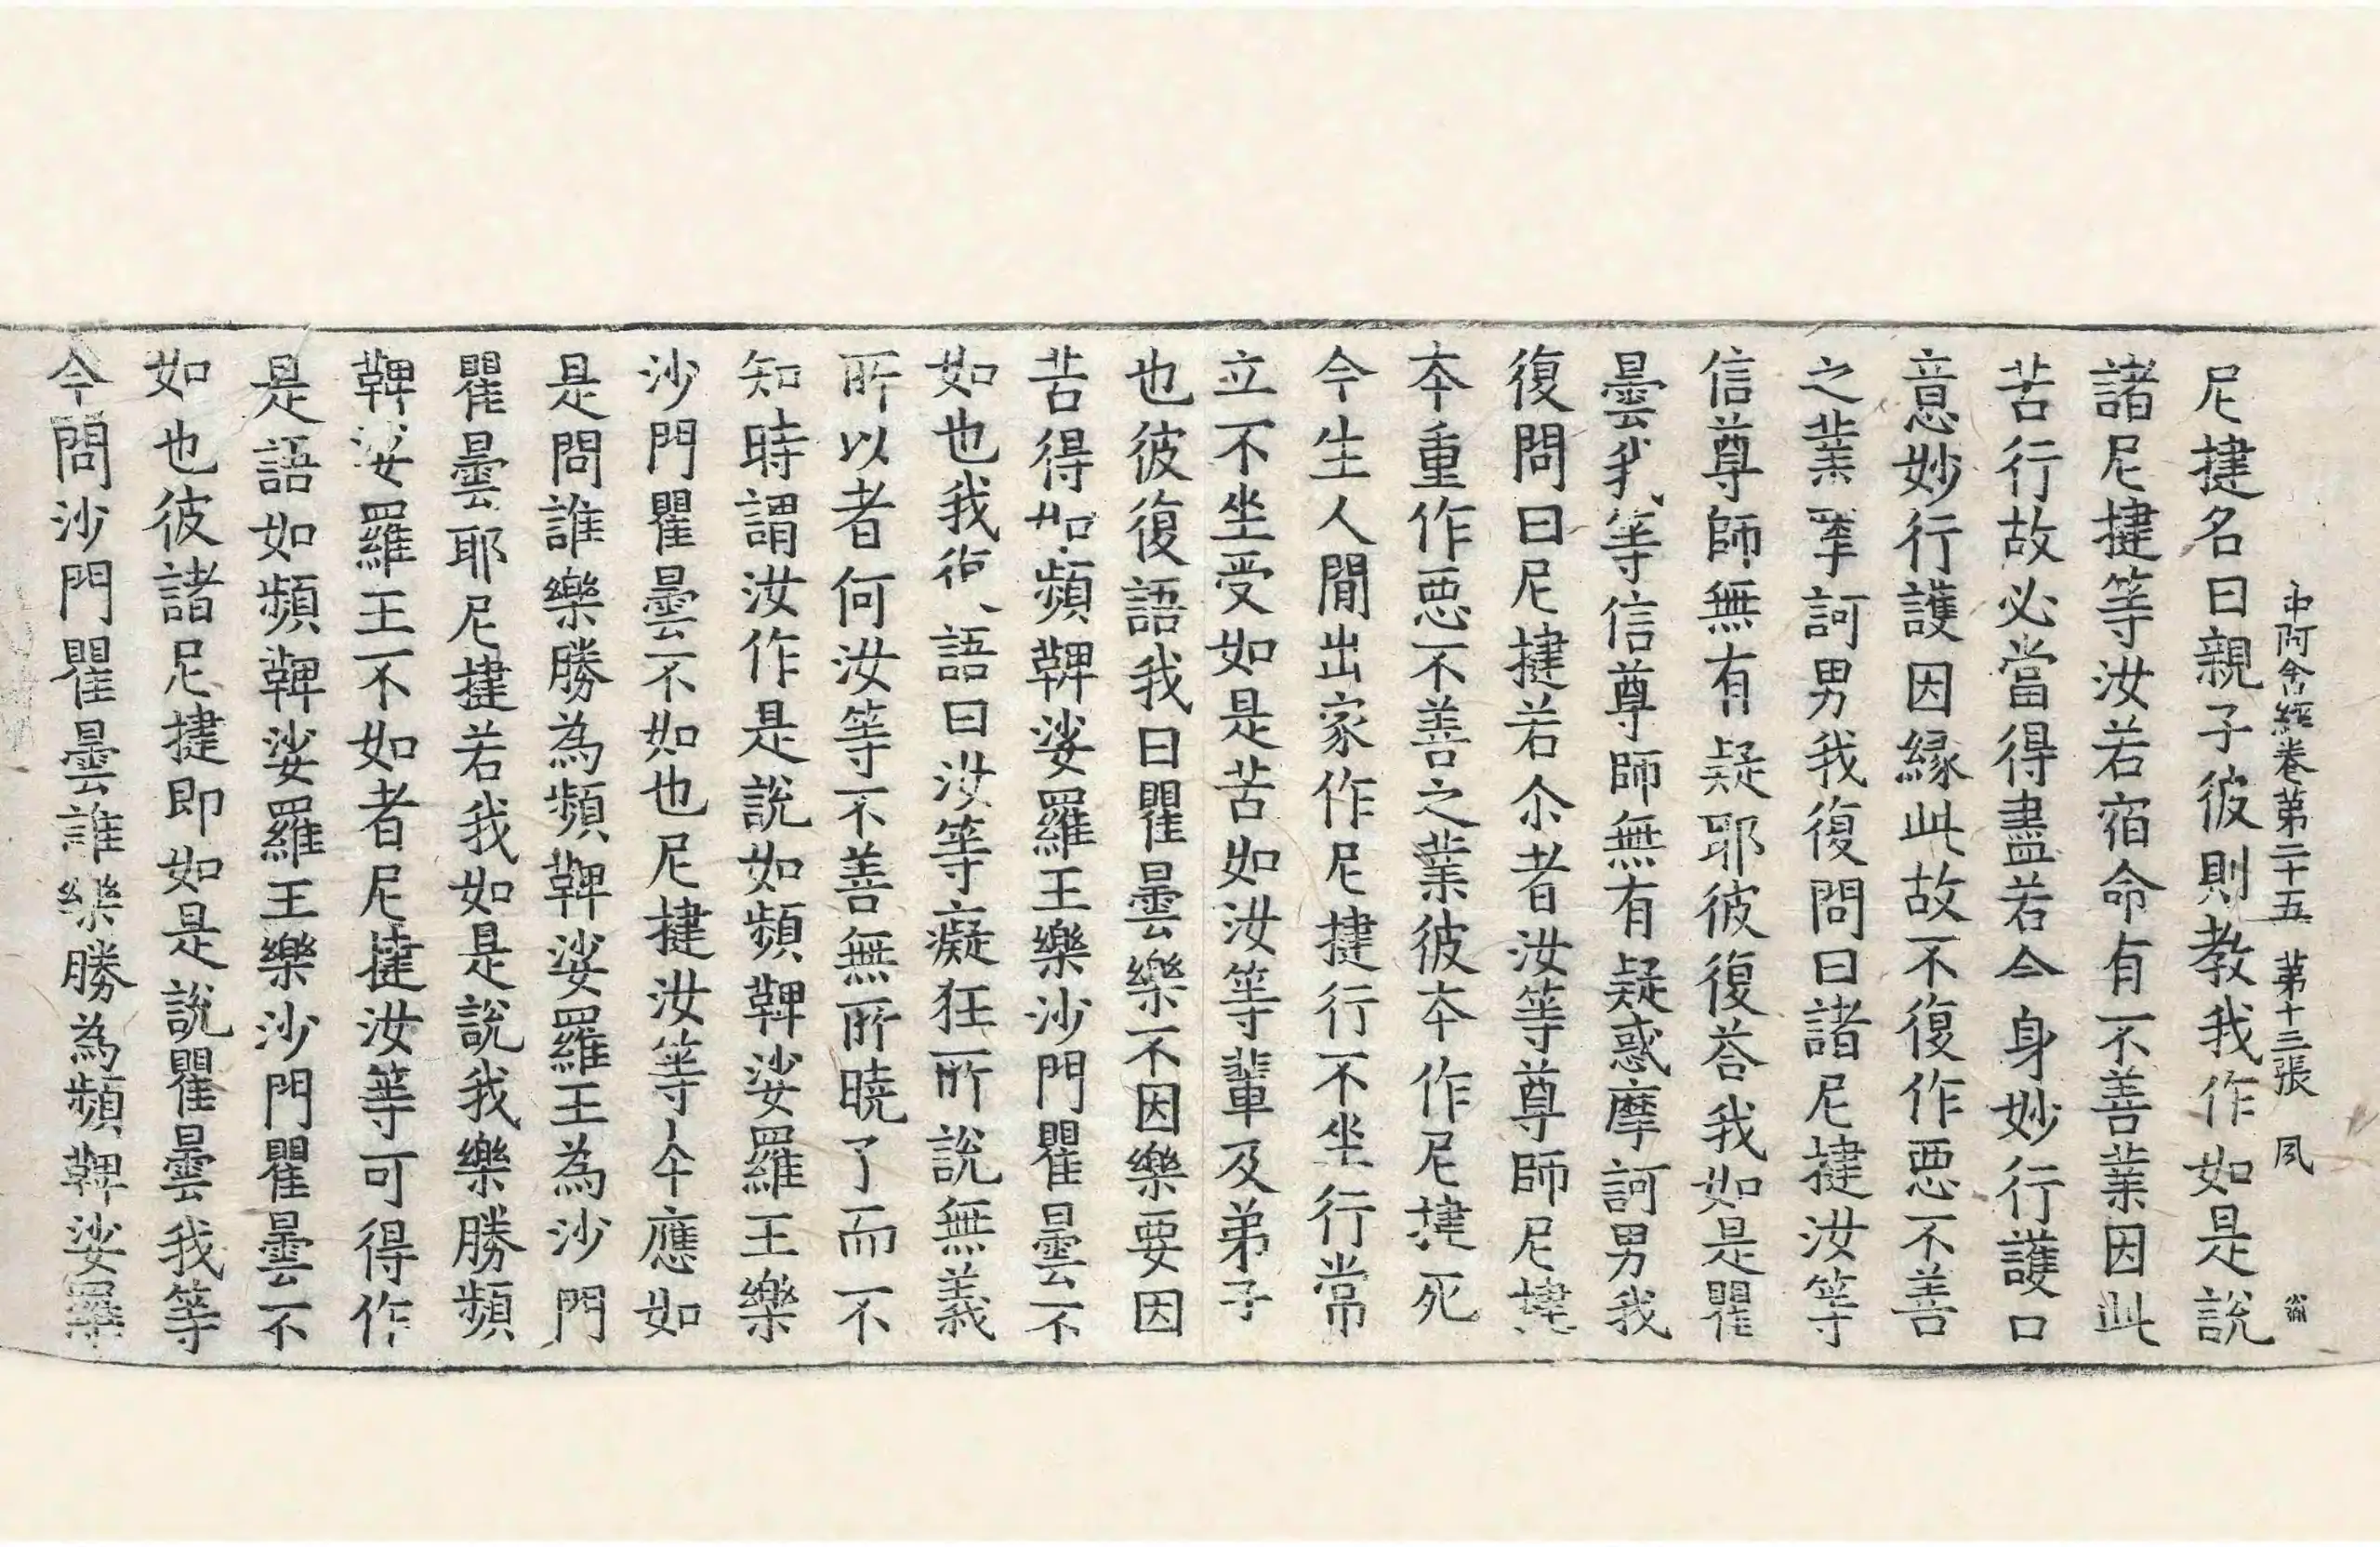 中阿含經卷第二十五 第十三張 夙
尼揵名曰親子彼則教我作如是說
諸尼揵等汝若宿命有不善業因此
苦行故必當得盡若今身妙行護口
意妙行護因緣此故不復作惡不善
之業摩訶男我復問曰諸尼揵汝等
信尊師無有疑耶彼復荅我如是瞿
曇我等信尊師無有疑惑摩訶男我
復問曰尼揵若尒者汝等尊師尼揵
本重作惡不善之業彼本作尼揵死
今生人閒出家作尼揵行不坐行常
立不坐受如是苦如汝等輩及弟子
也彼復語我曰瞿曇樂不因樂要因
苦得如頻鞞娑羅王樂沙門瞿曇不
如也我復語曰汝等癡狂所說無義
所以者何汝等不善無所曉了而不
知時謂汝作是說如頻鞞娑羅王樂
沙門瞿曇不如也尼揵汝等本應如
是問誰樂勝為頻鞞娑羅王為沙門
瞿曇耶尼揵若我如是說我樂勝頻
鞞娑羅王不如者尼揵汝等可得作
是語如頻鞞娑羅王樂沙門瞿曇不
如也彼諸尼揵即如是說瞿曇我等
今問沙門瞿曇誰樂勝為頻鞞娑羅